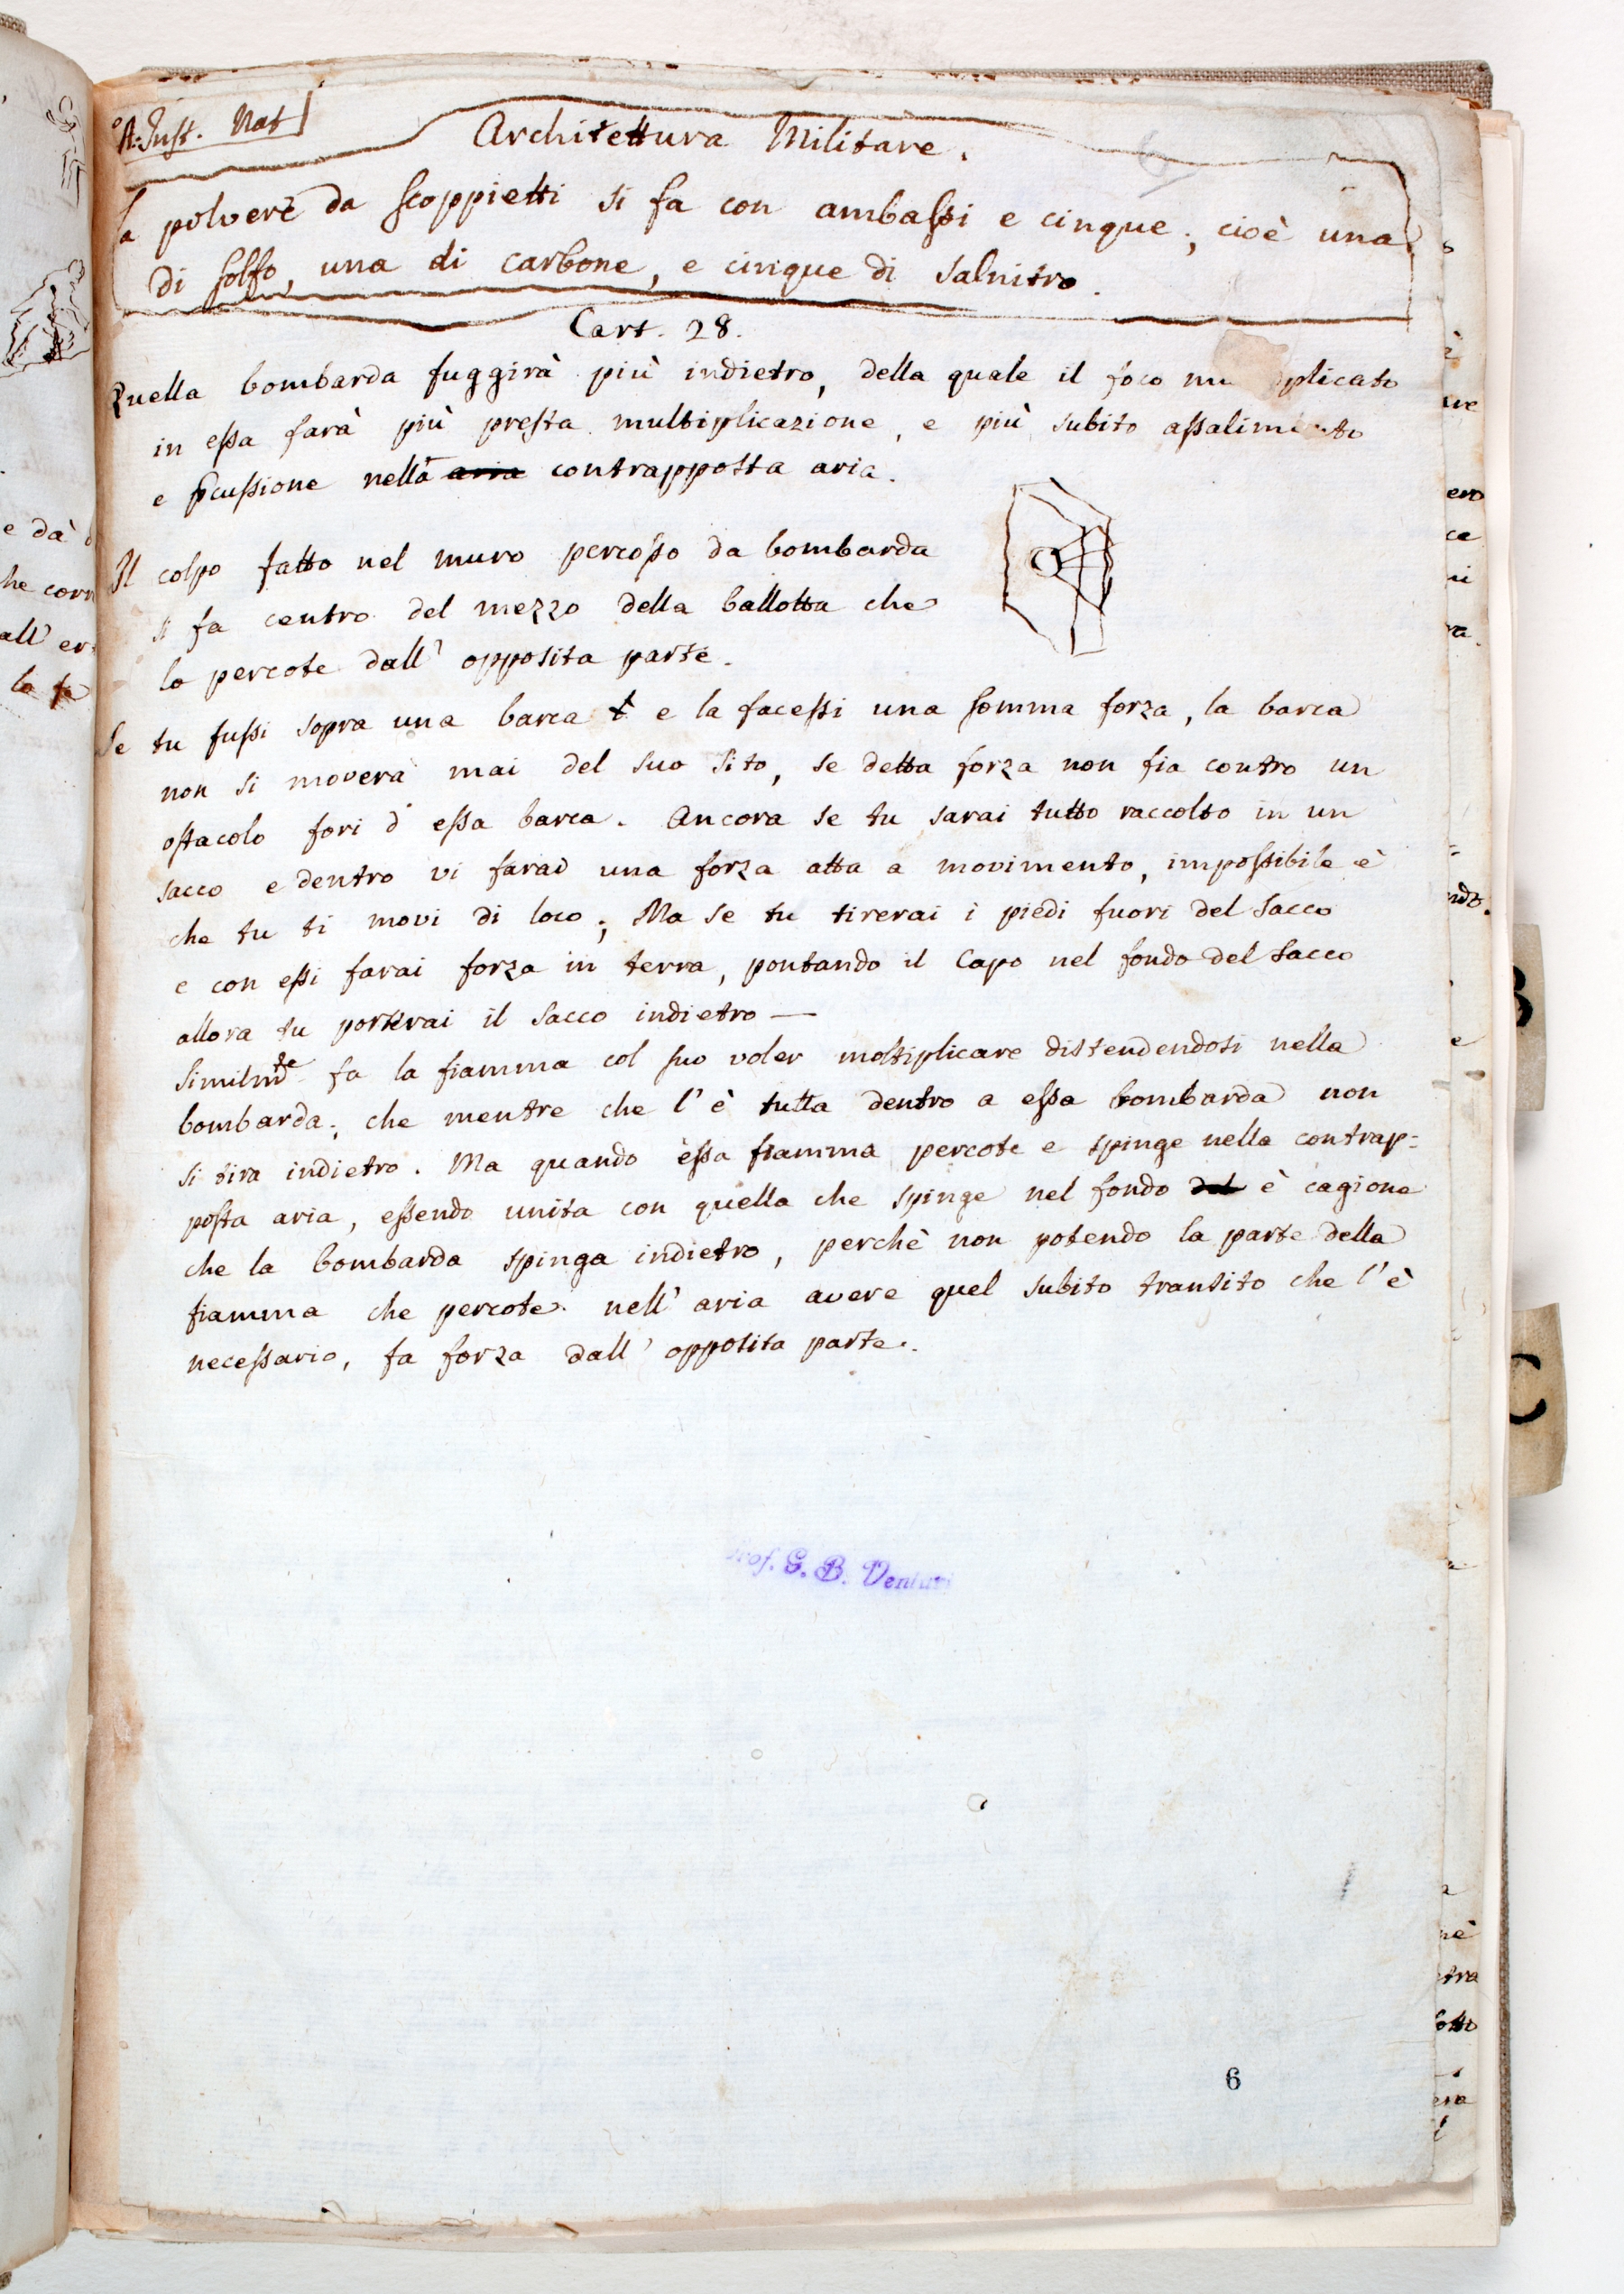 A. Inst. Nat
Architettura Militare.
La polvere da scoppietti si fa con ambassi e cinque; cioè una
di solfo, una di carbone, e cinque di salnitro.
Cart. 28.
Quella bombarda fuggirà più indietro, della quale il foco mu plicato
in essa farà più presta multiplicazione, e più subito assalimento
e pcussione nella aria contrapposta aria.
Il colpo fatto nel muro percosso da bombarda
si fa centro del mezzo della ballotta che
lo percote dall' opposita parte.
Se tu fussi sopra una barca t e la facessi una somma forza, la barca
non si moverà mai del suo sito, se detta forza non fia contro un
ostacolo fori d' essa barca. Ancora se tu sarai tutto raccolto in un
sacco e dentro vi farai una forza atta a movimento, impossibile è
che tu ti movi di loco; Ma se tu tirerai i piedi fuori del sacco
e con essi farai forza in terra, pontando il Capo nel fondo del sacco
allora tu porterai il sacco indietro —
Similmte fa la fiamma col suo voler moltiplicare distendendosi nella
bombarda; che mentre che l' è tutta dentro a essa bombarda non
si tira indietro. Ma quando essa fiamma percote e spinge nella contrap=
posta aria, essendo unita con quella che spinge nel fondo del è cagione
che la bombarda spinga indietro, perchè non potendo la parte della
fiamma che percote nell' aria avere quel subito transito che l' è
necessario, fa forza dall' opposita parte.
Prof. G. B. Venturi
6
e dà
he corr
all' er
la fa
ure
ero
ce
ni
ra.
ndo.
B
e
C
nè
tra
sotto
era